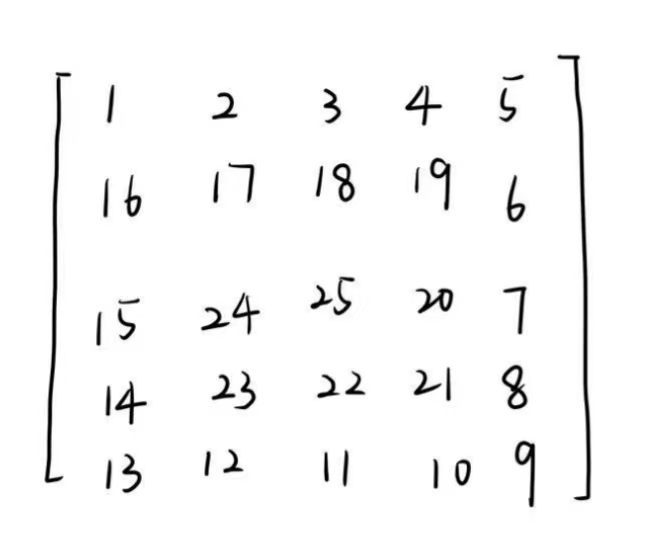 1 2 3 4 5
16 17 18 19 6
15 24 25 20 7
14 23 22 21 8
13 12 11 10 9